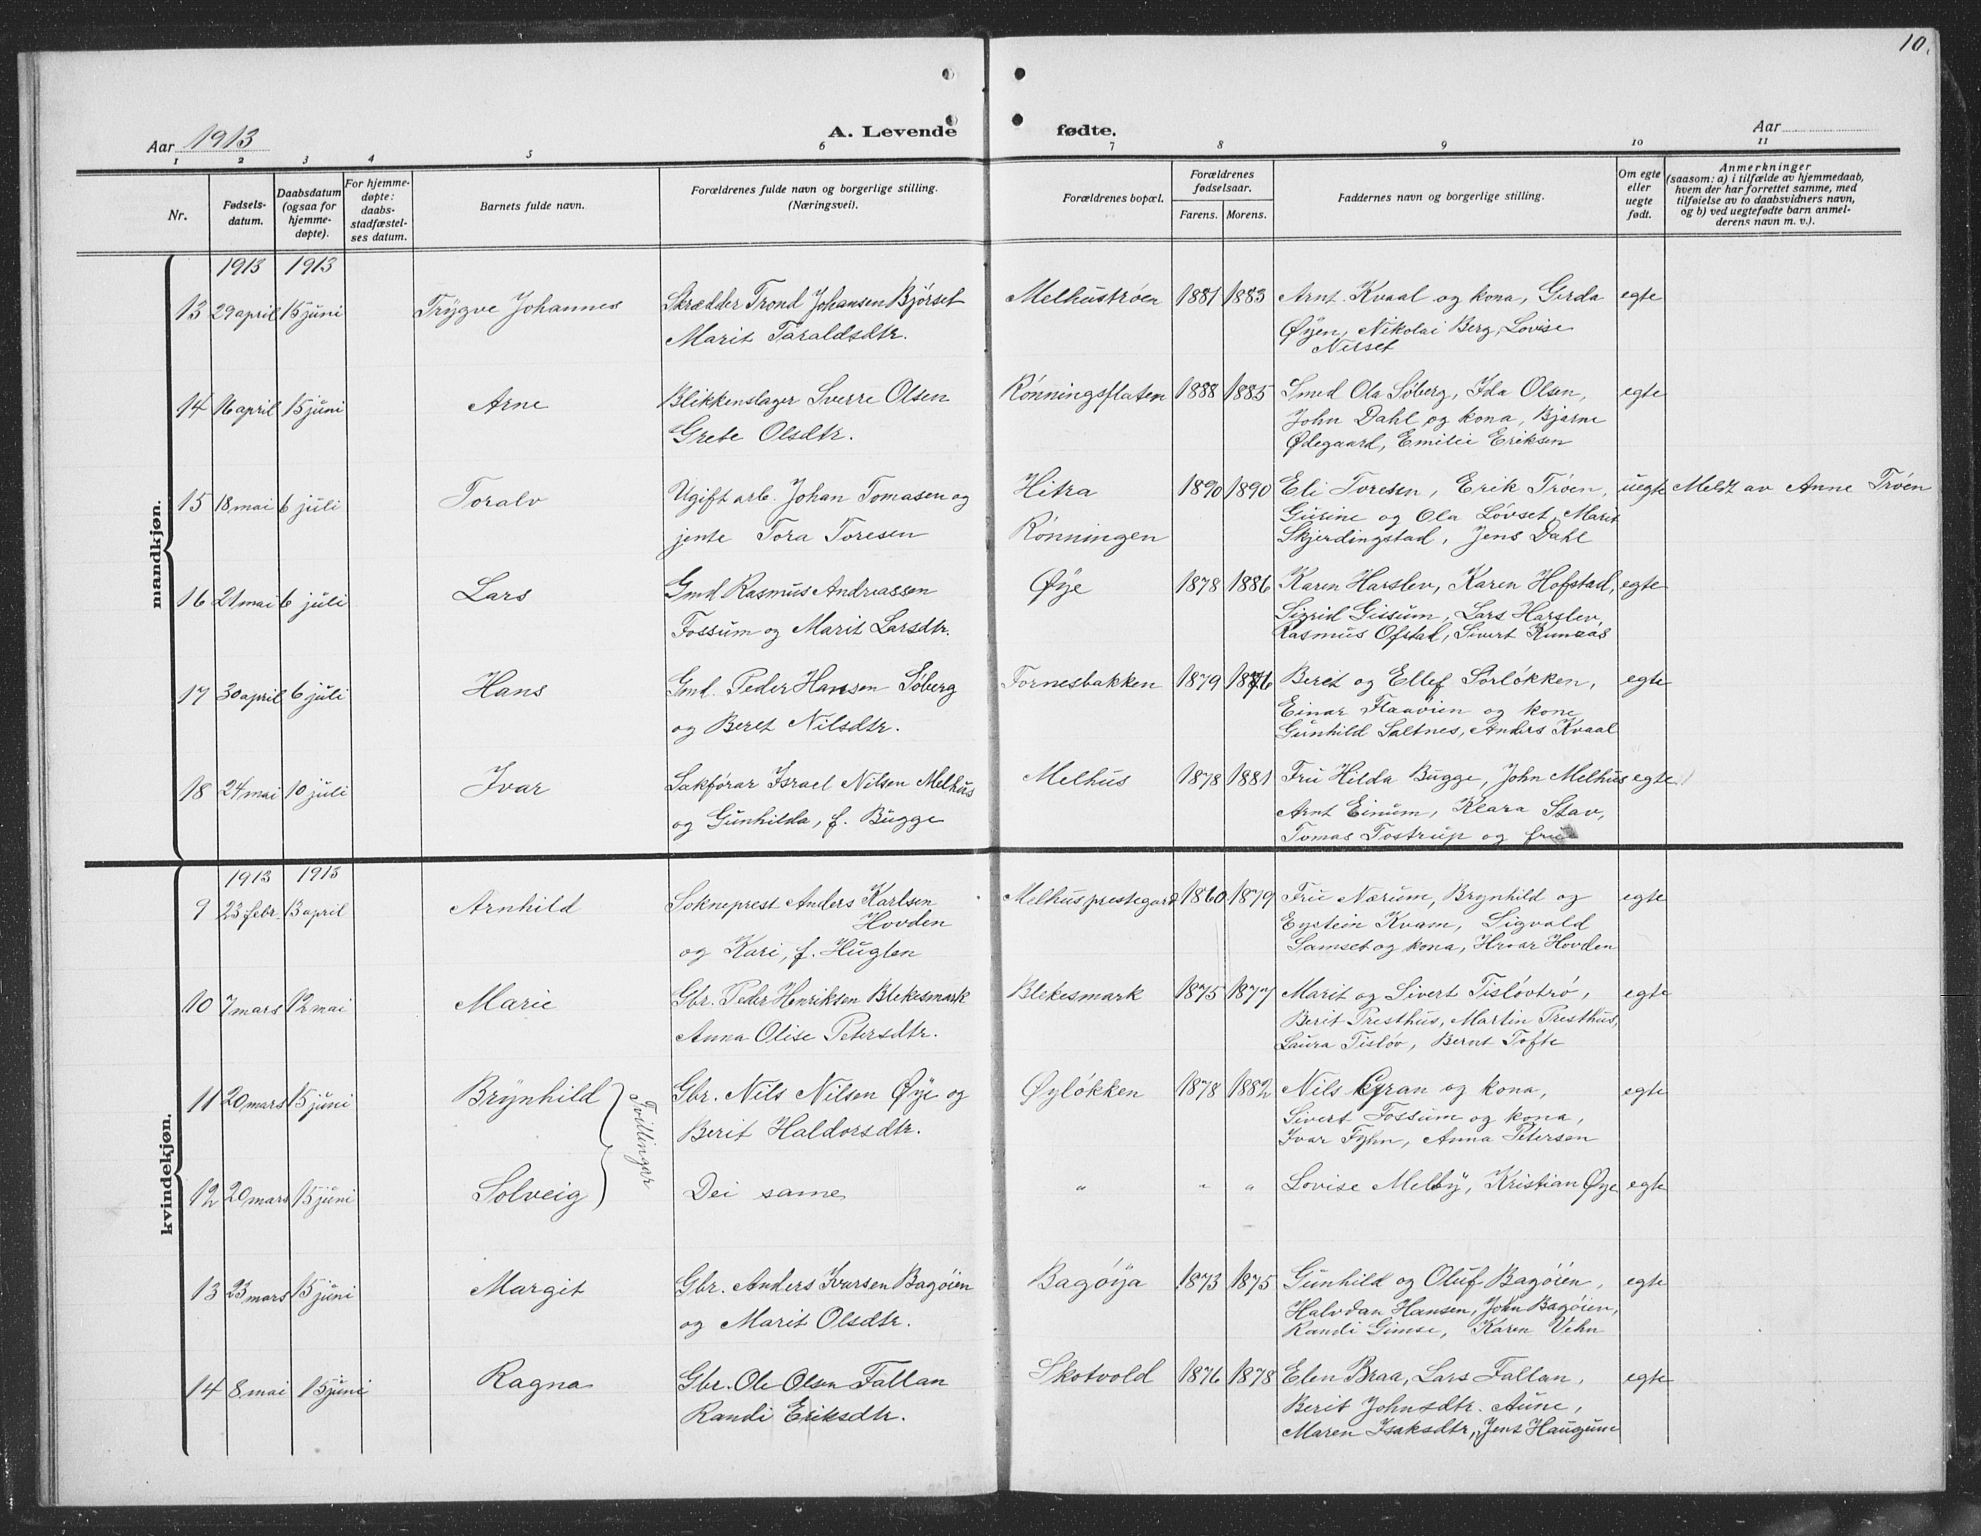 10.
Aar 1913
A. Levende fødte.
Aar
1 2 3 4 5 6 7 8 9 10 11
Nr.
Fødsels-
datum.
Daabsdatum
(ogsaa for
hjemme-
døpte).
For hjemme-
døpte:
daabs-
stadfæstel-
ses datum.
Barnets fulde navn.
Forældrenes fulde navn og borgerlige stilling.
(Næringsvei).
Forældrenes bopæl.
Forældrenes
fødselsaar.
Farens. Morens.
Faddernes navn og borgerlige stilling.
Om egte
eller
uegte
født.
Anmerkninger
(saasom: a) i tilfælde av hjemmedaab,
hvem der har forrettet samme, med
tilføielse av to daabsvidners navn,
og b) ved uegtefødte barn anmel-
derens navn m. v.).
mandkjøn.
1913 1913
13 29 april 15 juni Trygve Johannes Skrædder Trond Johansen Bjørset Melhustrøen 1881 1883 Arnt Kvaal og kona, Gerda egte
Marit Taraldsdtr. Øyen, Nikolai Berg, Lovise
Nelset
14 16 april 15 juni Arne Blikkenslager Sverre Olsen Rønningsflaten 1888 1885 Smed Ola Søberg, Ida Olsen, egte
Grete Olsdtr. John Dahl og kona, Bjarne
Ødegaard, Emilie Eriksen
15 18 mai 6 juli Toralv Ugift arb. Johan Tomasen og Hitra 1890 1890 Eli Toresen, Erik Trøen, uegte Meldt av Anne Trøen
jente Tora Toresen Rønningen Gurine og Ola Løvset, Marit
Skjerdingstad, Jens Dahl
16 21 mai 6 juli Lars Gmd. Rasmus Andreassen Øye 1878 1886 Karen Harslev, Karen Hofstad, egte
Fossum og Marit Larsdtr. Sigrid Gissum, Lars Harslev,
Rasmus Ofstad, Sivert
17 30 april 6 juli Hans Gmd. Peder Hansen Søberg Fornesbakken 1879 1876 Beret og Ellef Sørløkken, egte
og Beret Nilsdtr. Einar Flaavien og kone
Gunhild Saltnes, Anders Kvaal
18 24 mai 10 juli Ivar Sakførar Israel Nilsen Melhus Melhus 1878 1881 Fru Hilda Bugge, John Melhus egte
og Gunhilda, f. Bugge Arnt Einum, Klara Stav,
Tomas Tostrup og frue
kvindekjøn.
1913 1913
9 23 febr. 13 april Arnhild Sokneprest Anders Karlsen Melhus prestegard 1860 1879 Fru Nærum, Brynhild og egte
Hovden Eystein Kvam, Sigvald
og Kari, f. Huglen Samset og kona, Hroar Hovden
10 7 mars 12 mai Marie Gbr. Peder Henriksen Blekesmark Blekesmark 1875 1877 Marit og Sivert Tisløvtrø, egte
Anna Olise Petersdtr. Berit Presthus, Martin Presthus,
Laura Tisløv, Bernt Tofte
11 20 mars 15 juni Brynhild Tvillingar Gbr. Nils Nilsen Øye og Øyløkken 1878 1882 Nils Gran og kona, egte
Berit Haldorsdtr. Sivert Fossum og kona,
Ivar Fyhn, Anna Petersen
12 20 mars 15 juni Solveig Dei same " " " Lovise Melby, Kristian Øye egte
13 23 mars 15 juni Margit Gbr. Anders Ivarsen Bagøien Bagøya 1873 1875 Gunhild og Oluf Bagøien, egte
og Marit Olsdtr. Halvdan Hansen, John Bagøien,
Randi Gimse, Karen Vehn
14 8 mai 15 juni Ragna Gbr. Ole Olsen Fallan Skotvold 1876 1878 Elen Braa, Lars Fallan, egte
Randi Eriksdtr. Berit Johnsdtr. Aune,
Maren Isaksdtr., Jens Haugum